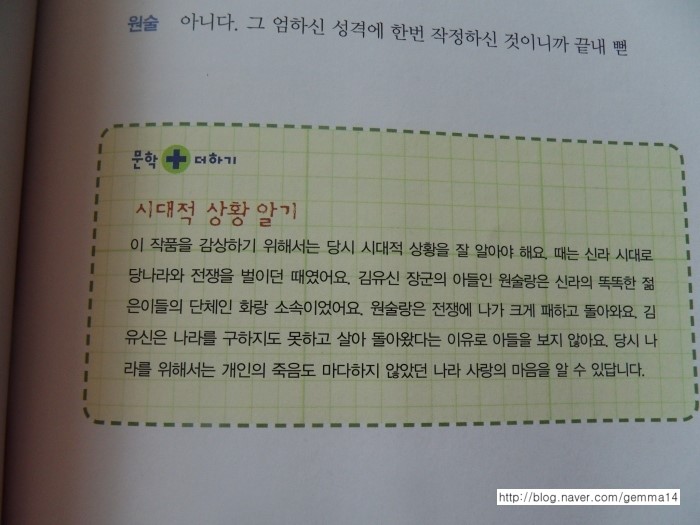 원술 아니다. 그 엄하신 성격에 한번 작정하신 것이니까 끝내 뻗
문학 + 더하기
시대적 상황 알기
이 작품을 감상하기 위해서는 당시 시대적 상황을 잘 알아야 해요. 때는 신라 시대로
당나라와 전쟁을 벌이던 때였어요. 김유신 장군의 아들인 원술랑은 신라의 똑똑한 젊
은이들의 단체인 화랑 소속이었어요. 원술랑은 전쟁에 나가 크게 패하고 돌아와요. 김
유신은 나라를 구하지도 못하고 살아 돌아왔다는 이유로 아들을 보지 않아요. 당시 나
라를 위해서는 개인의 죽음도 마다하지 않았던 나라 사랑의 마음을 알 수 있답니다.
http://blog.naver.com/gemma14